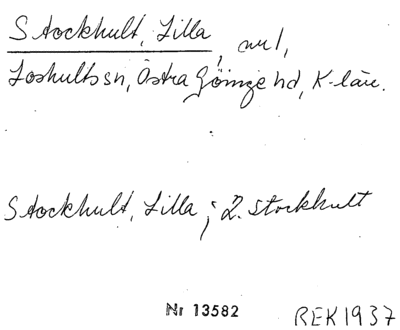 Stockhult, Lilla, nr 1,
Loshults sn, Östra Göinge hd, K-län.
Stockhult, Lilla; L. Stockhult
Nr 13582 REK1937